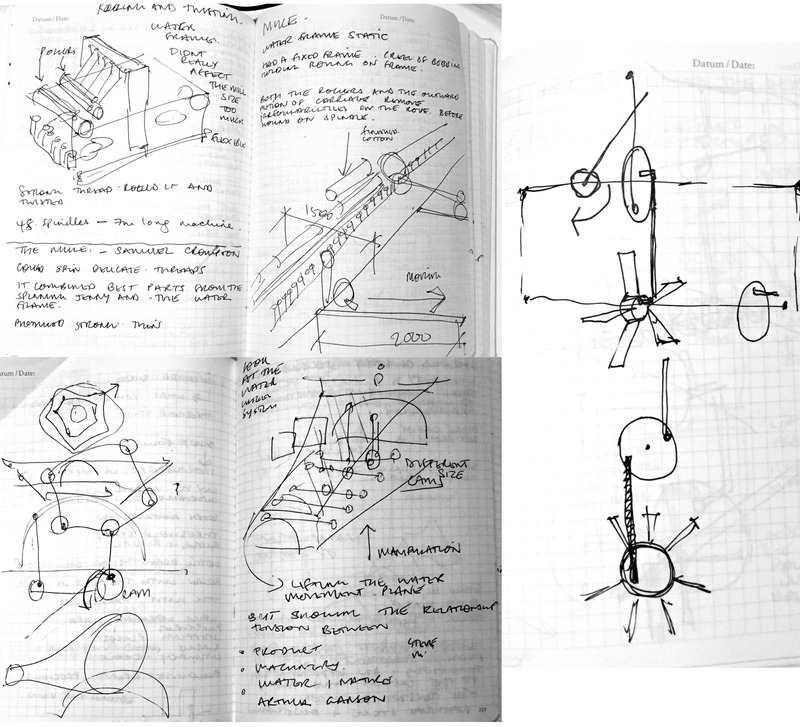 ROLLING AND TWISTING.
WATER
FRAME.
ROLLERS
DIDNT
REALLY
AFFECT
THE MILL
SIZE
TOO
MUCH
FLEXIBLE
STRONG THREAD. ROLLED IT AND
TWISTED
48. SPINDLES — 7m long machine.
THE MULE. — SAMUEL CROMPTON
COULD SPIN DELICATE THREADS
IT COMBINED BEST PARTS FROM THE
SPINNING JENNY AND THE WATER
FRAME.
PRODUCED STRONG. THIN
Datum / Date:
MULE.
WATER FRAME STATIC
HAD A FIXED FRAME. CREEL OF BOBBINS
HOLDING ROVING ON FRAME.
BOTH THE ROLLERS AND THE OUTWARD
MOTION OF CARRIAGE REMOVE
IRREGULARITIES IN THE ROVE. BEFORE
WOUND ON SPINDLE.
FINISHED
COTTON
1500
MOVING
2000
Datum / Date:
CAM
?
LOOK
AT THE
WATER
WHEEL
SYSTEM
DIFFERENT
SIZE
CAMS
MANIPULATION
LIFTING THE WATER
MOVEMENT. PLANE
BUT SHOWING THE RELATIONSHIP
TENSION BETWEEN
PRODUCT
MACHINERY.
WATER / NATURE
ARTHUR GANSON
Datum / Date: